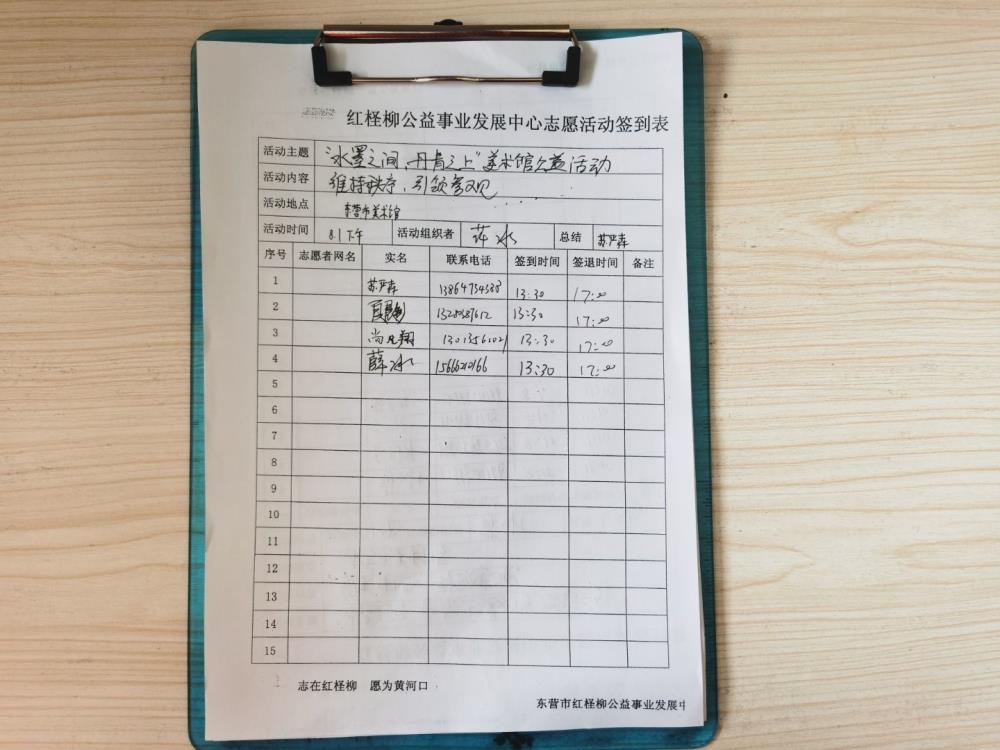 红柽柳公益事业发展中心志愿活动签到表
活动主题 "水墨之间,丹青之上"美术馆公益活动
活动内容 维持秩序、引领参观
活动地点 东营市美术馆
活动时间 8.1下午 活动组织者 冰 总结 苏严森
序号 志愿者网名 实名 联系电话 签到时间 签退时间 备注
1 苏严森 13:30 17:00
2 13:30 17:00
3 尚凡翔 13:30 17:00
4 薛冰 13:30 17:00
5
6
7
8
9
10
11
12
13
14
15
志在红柽柳 愿为黄河口
东营市红柽柳公益事业发展中